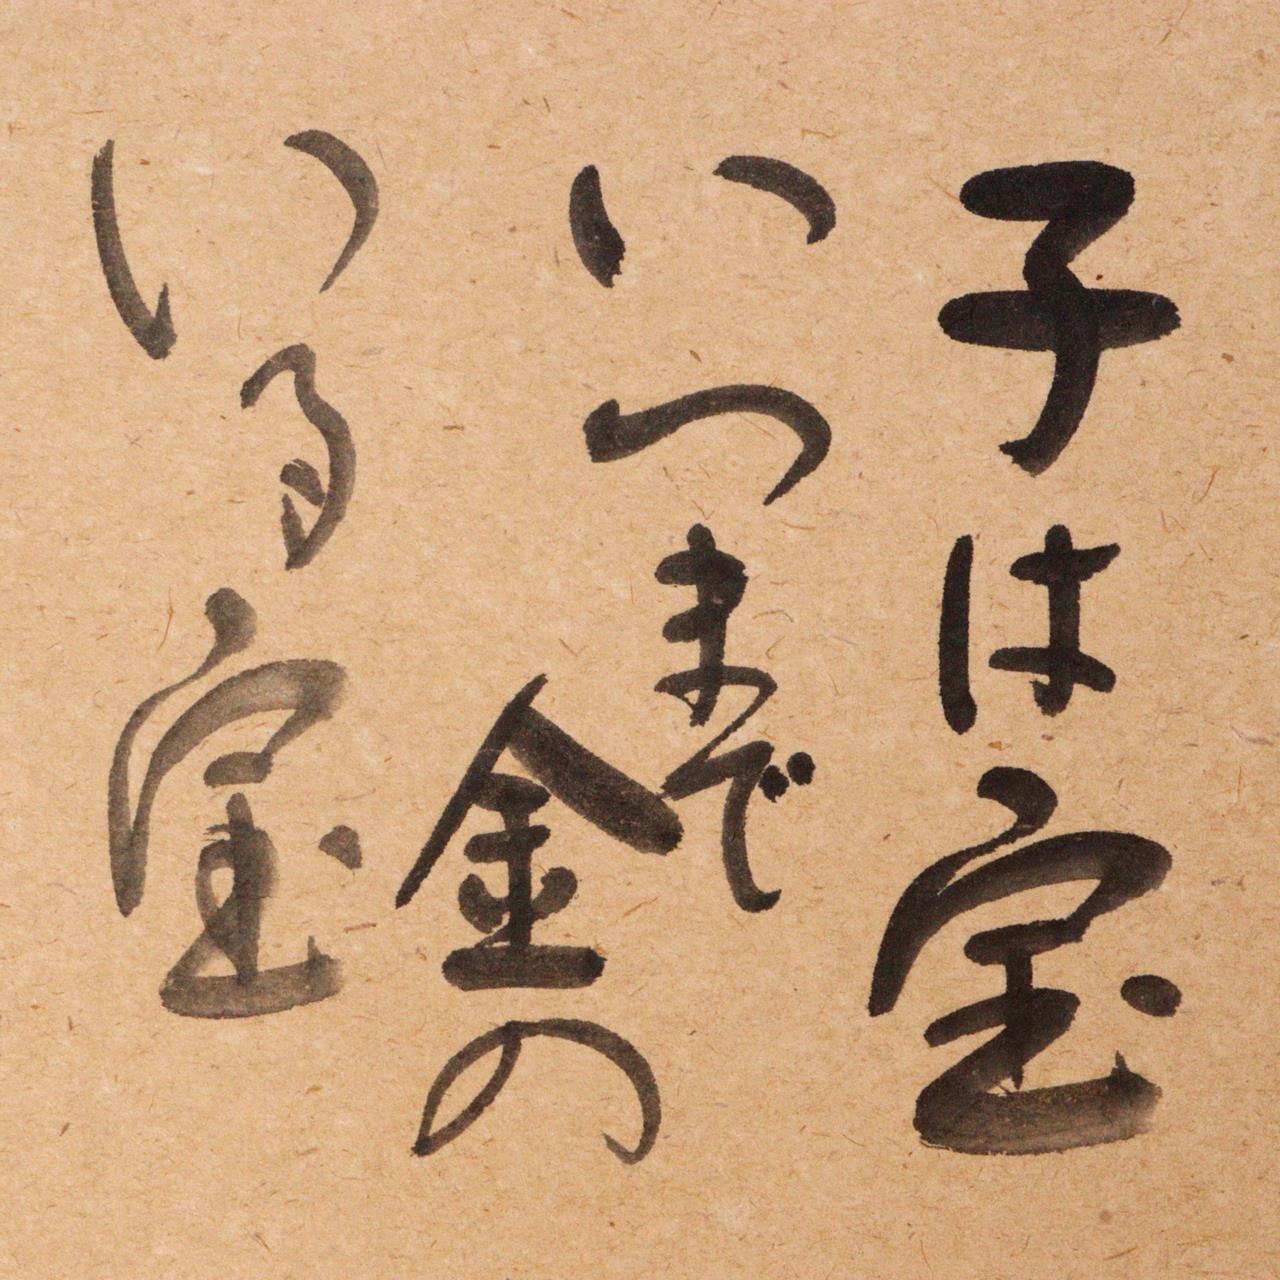 子は宝
いつまで金の
いる宝